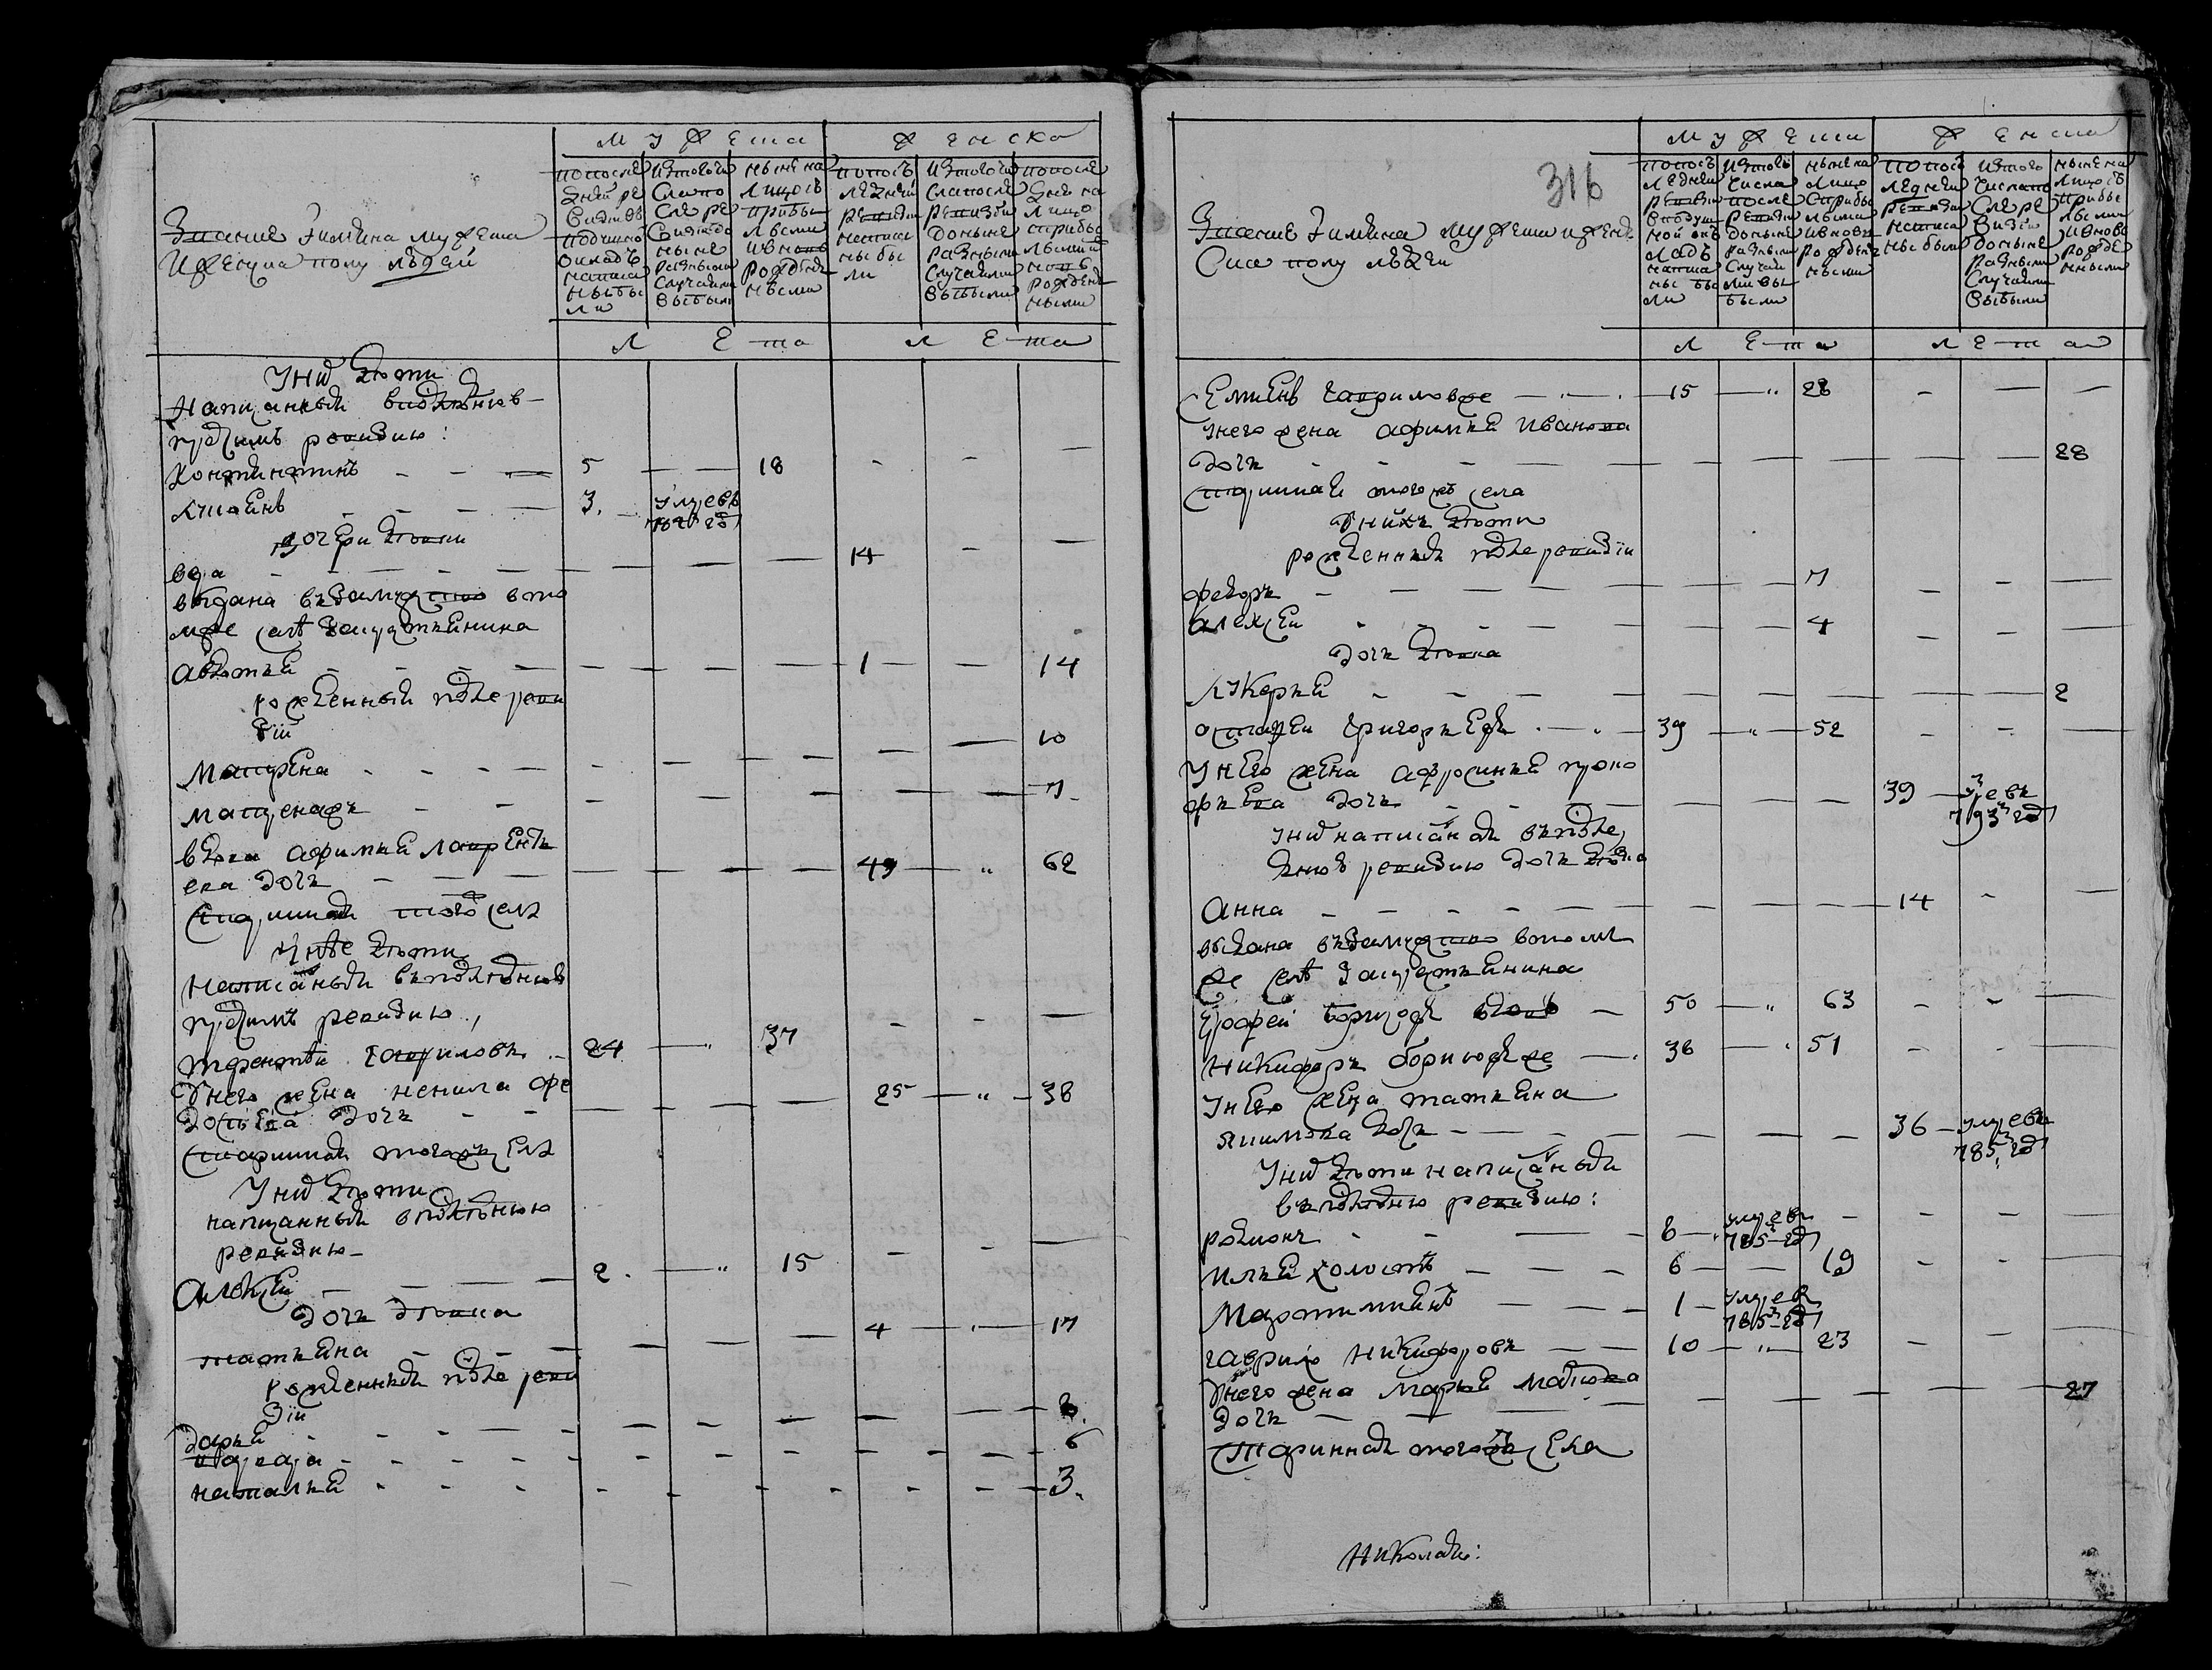 мужеска
женска
Звание имяна мужеска
и женска полу людей
по после
дней ре
визиде
подушно
окладъ
написа
ны бы
ли
из того чи
сла по
сле ре
визи до
ныне
разными
случаими
выбыли
ныне на
лицо съ
прибы
лыми
и вновь
рожден
ными
по посъ
ледней
ревизии
написа
ны бы
ли
из того чи
сла после
ревизии
доныне
разными
случаими
выбыли
по после
дней на
лицо
с прибы
лыми и
новь
рожден
ными
лета
лета
У них дети
написанныя в последнюю
пред симъ ревизию:
Константинъ 5 18
3. умре въ
дочери девки
14
выдана в замужство в то
мже селе за крестьянина
Авдотья 1 14
рожденныя после реви
зии
10
Матрена
7
вдова Афимья Лаврентье
ева дочь 49 62
старинная того села
у нее дети
написаныя в последнюю
пред симъ ревизию
Терентей Гавриловъ 24 37
У него жена Ненила Фе
досьева дочь 25 38
старинная тогожъ села
У них дети
написанныя в последнюю
ревизию
Алексей 2. 15
дочь девка
Татьяна 4 17
рожденныя после реви
зии
Дарья 8.
Варвара 6
Наталья 3.
316
мужеска
женска
Звание имяна мужеска и жен
ска полу людей
по посъ
ледней
ревизии
в подуш
ной окъ
ладъ
написа
ны бы
ли
из того
числа
после
ревизии
доныне
разными
случаи
ми вы
были
ныне на
лицо
с прибы
лыми
и вновь
рожден
ными
по посъ
ледней
ревизии
написа
ны были
из того
числа по
сле ре
визии
доныне
разными
случаими
выбыли
ныне на
лицо съ
прибы
лыми
и вново
рожде
нными
лета
лета
Семенъ Гавриловъ же 15 28
у него жена Афимья Иванова
дочь 28
старинная тогожъ села
У нихъ дети
рожденныя после ревизии
Федоръ 7
Алексей 4
дочь девка
Лукерья 2
Астафей Григорьевъ 39 52
У него жена Афросинья Проко
фьева дочь 39 умре въ
793м году
у них написаная в после
днюю ревизию дочь девка
Анна 14
выдана в замужство в томъ
же селе за крестьянина
Ерофей Борисовъ вдовъ 50 63
Никифоръ Борисовъ же 38 51
У него жена Татьяна
Якимова дочь 36 умре въ
785м году
У них дети написаныя
в последнюю ревизию:
Родионъ 8 умре въ
785 году
Илья холостъ 6 19
1 умре въ
785м году
Гаврило Никифоровъ 10 23
У него жена Марья Матвеева
дочь 27
старинная тогожъ села
Николай: